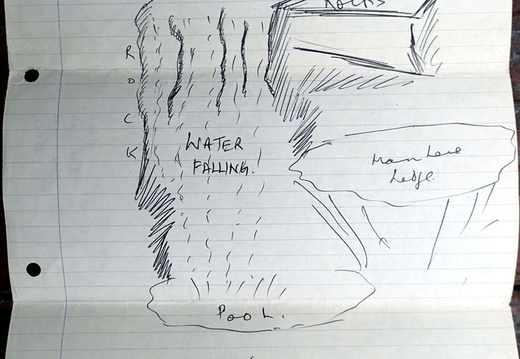 ROCKS
ROCK
WATER
FALLING.
Man Here
Ledge
Pool.